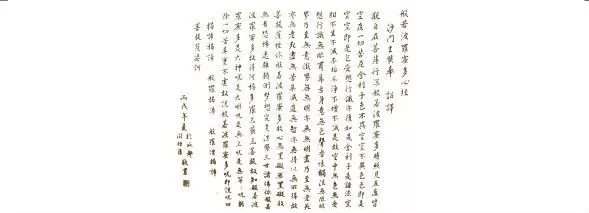 般若波羅蜜多心経
沙門玄奘奉 詔譯
觀自在菩薩行深般若波羅蜜多時照見五蘊皆
空度一切苦厄舍利子色不異空空不異色色即是
空空即是色受想行識亦復如是舍利子是諸法空
相不生不滅不垢不淨不增不減是故空中無色無受
想行識無眼耳鼻舌身意無色聲香味觸法無眼
界乃至無意識界無無明亦無無明盡乃至無老死
亦無老死盡無苦集滅道無智亦無得以無所得故
菩提薩埵依般若波羅蜜多故心無罣礙無罣礙故
無有恐怖遠離顛倒夢想究竟涅槃三世諸佛依般若
波羅蜜多故得阿耨多羅三藐三菩提故知般若波
羅蜜多是大神呪是大明呪是無上呪是無等等呪能
除一切苦真實不虛故說般若波羅蜜多呪即說呪曰
揭諦揭諦 般羅揭諦 般羅僧揭諦
菩提薩婆訶
丙戌年夏於成都
敬書